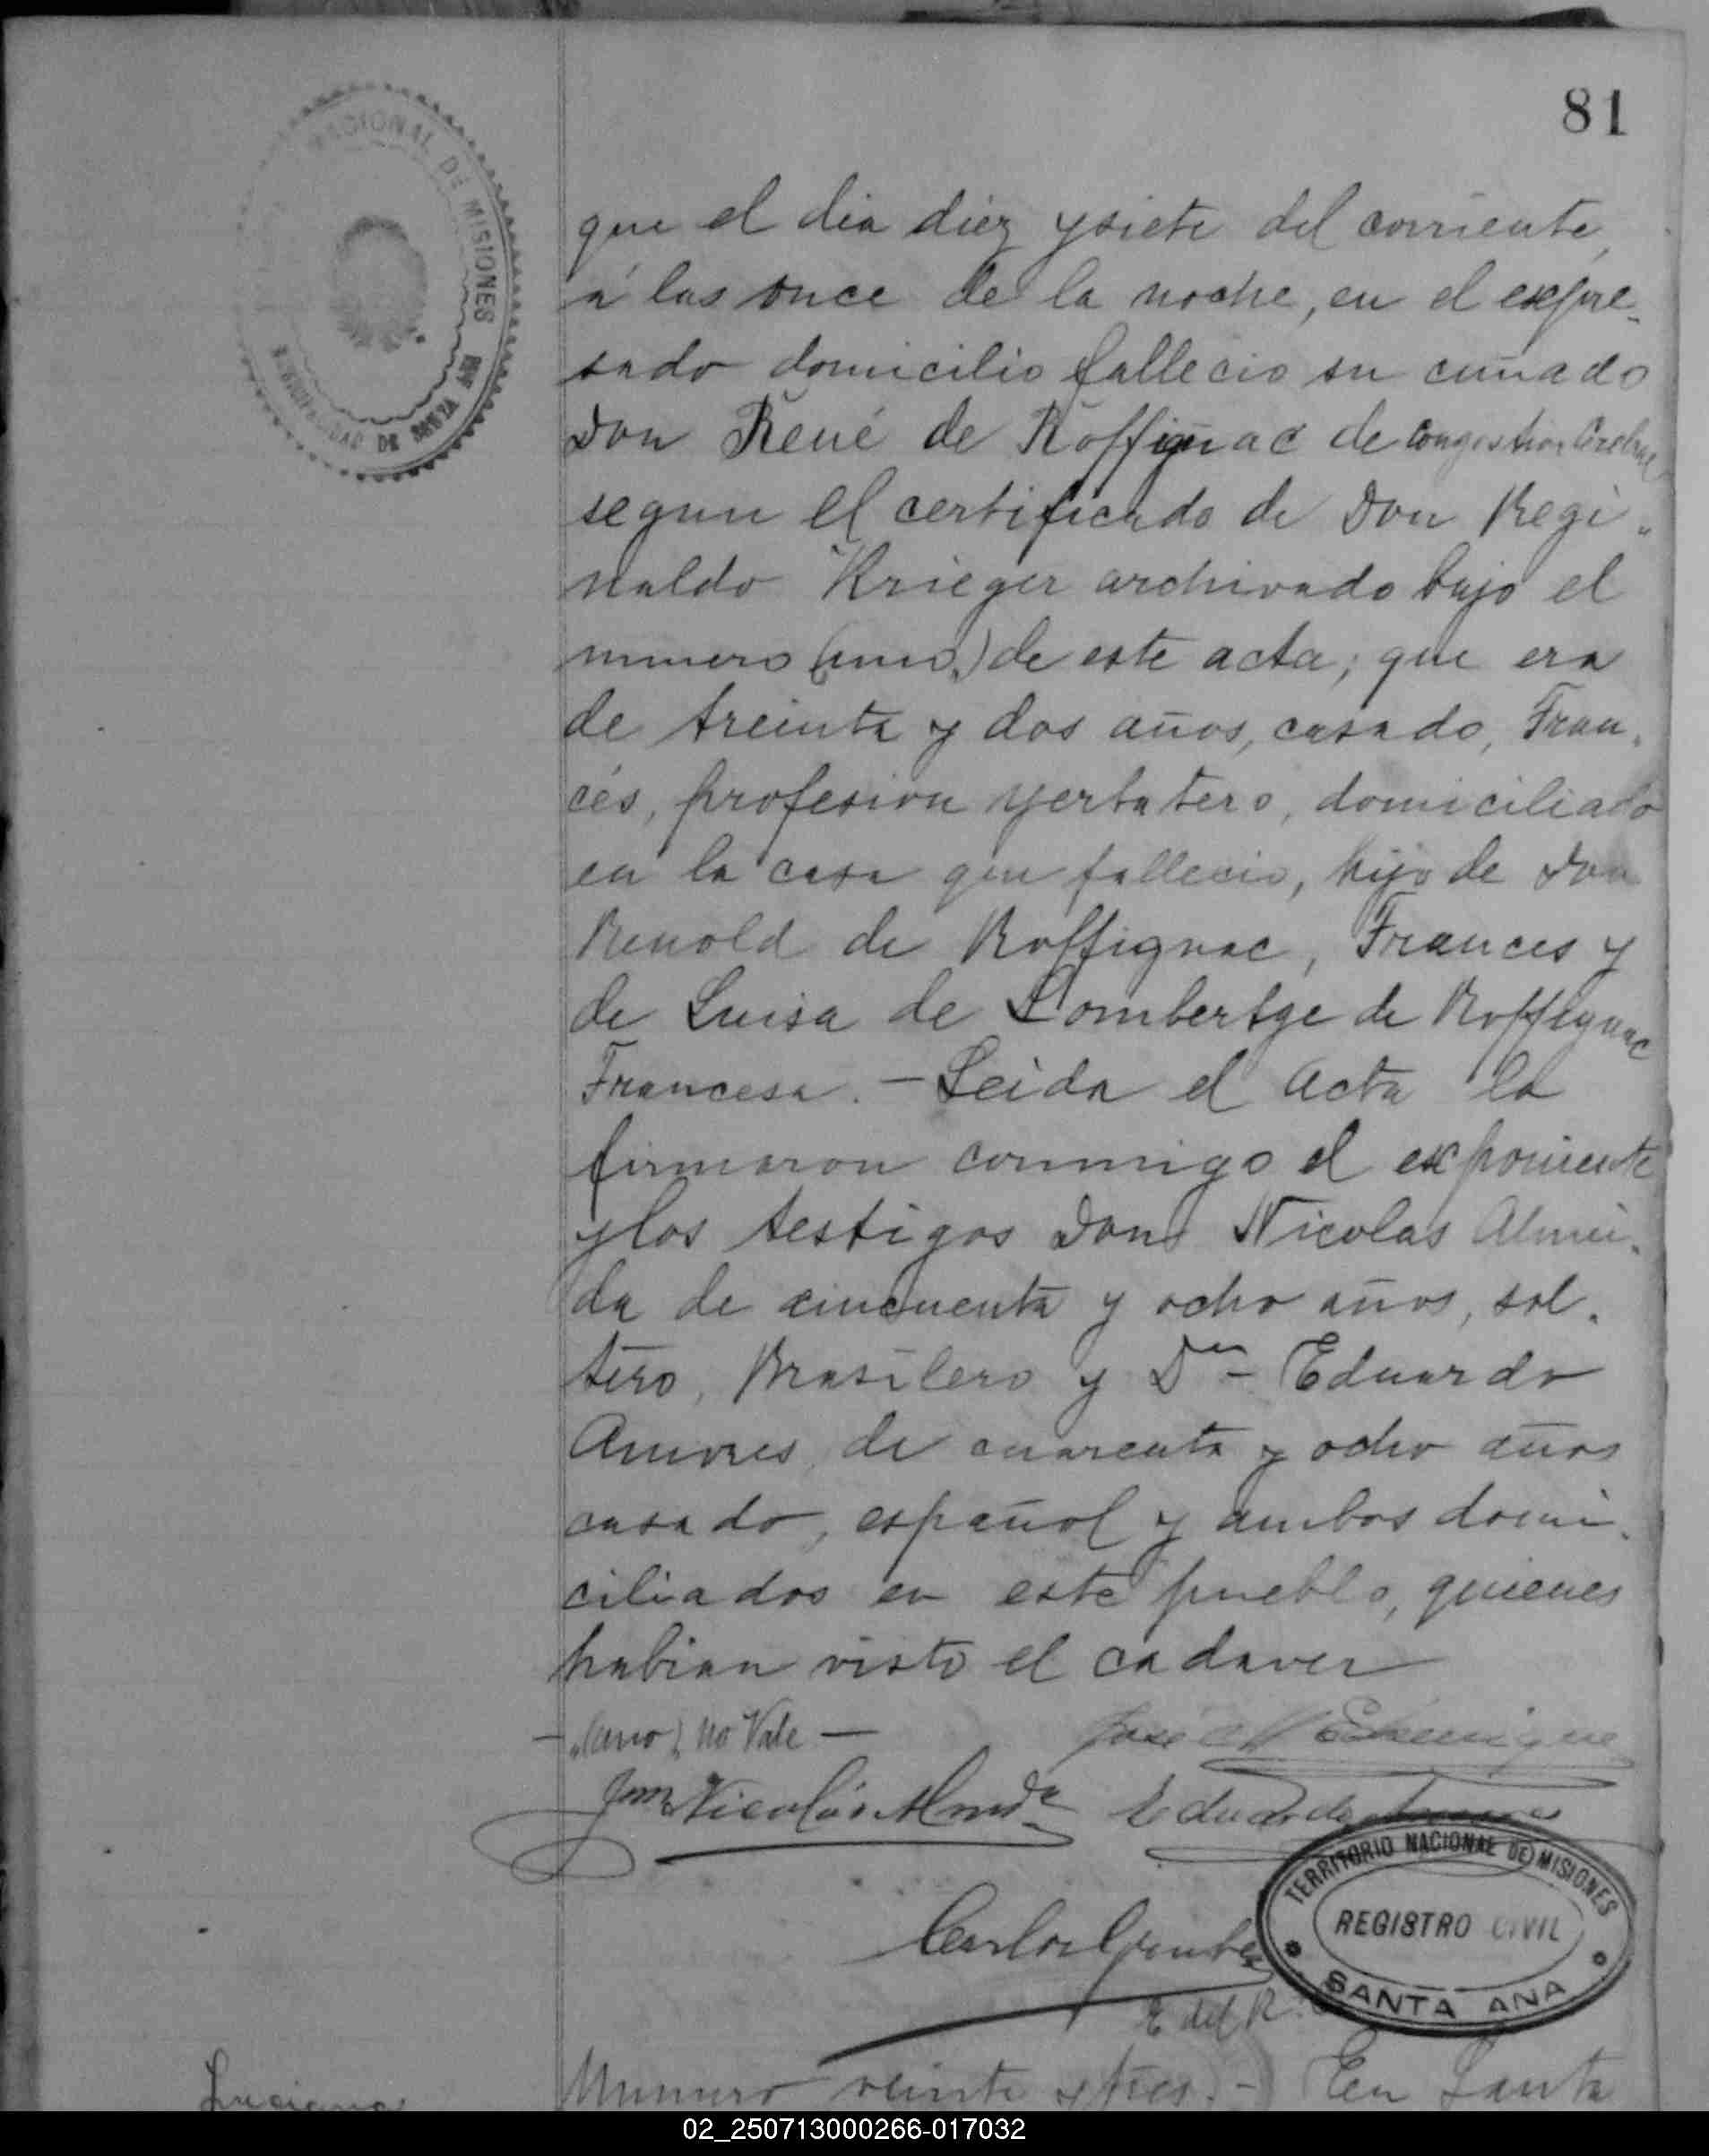 81
NACIONAL DE MISIONES
MUNICIPALIDAD DE SANTA ANA
que el dia diez y siete del corriente,
á las once de la noche, en el expre-
sado domicilio fallecio su cuñado
Don René de Roffignac de congestion Cerebral
segun el certificado de Don Regi-
naldo Krieger archivado bajo el
numero (uno) de este acta; que era
de treinta y dos años, casado, Fran-
cés, profesion yerbatero, domiciliado
en la casa que fallecio, hijo de Don
Renold de Roffignac, Frances y
de Luisa de Lombertge de Roffignac
Francesa. — Leida el Acta la
firmaron conmigo el exponiente
y los testigos Don Nicolas Almei-
da de cincuenta y ocho años, sol-
tero, Brasilero y Dn Eduardo
Amores, de cuarenta y ocho años
casado, español y ambos domi-
ciliados en este pueblo, quienes
habian visto el cadaver
— (uno) no Vale —
José M Echenique
Nicolás Almda
Eduardo Amores
Carlos Gruber
E del R. C
TERRITORIO NACIONAL DE MISIONES
REGISTRO CIVIL
SANTA ANA
Luciano
Numero veinte y tres. — En Santa
02_250713000266-017032